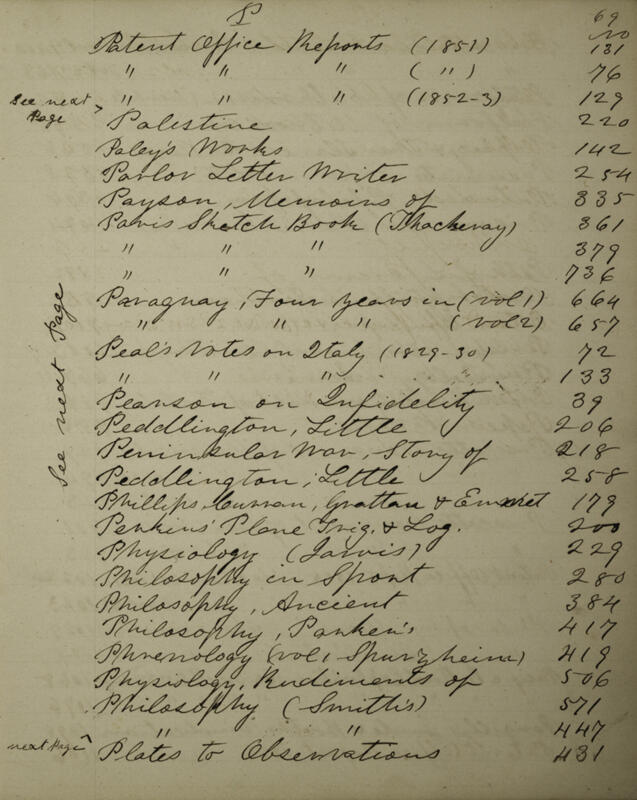 P
69
No
Patent Office Reports (1851) 131
" " " (") 76
" " " (1852-3) 129
See next Page > Palestine 220
Paley's Works 142
Parlor Letter Writer 254
Payson, Memoirs of 335
Paris Sketch Book (Thackeray) 361
" " " 379
" " " 736
Paraguay, Four years in (vol 1) 664
" " " (vol 2) 657
Peal's Notes on Italy (1829-30) 72
" " " 133
See next Page
Pearson on Infidelity 39
Peddlington, Little 206
Peninsular War, Story of 218
Peddlington, Little 258
Phillips, Curran, Grattan & Emmet 179
Perkins' Plane Trig. & Log. 200
Physiology (Jarvis) 229
Philosophy in Sport 280
Philosophy, Ancient 384
Philosophy, Parker's 417
Phrenology (vol 1 Spurzheim) 419
Physiology, Rudiments of 506
Philosophy (Smittis) 571
" " 447
next Page Plates to Observations 431